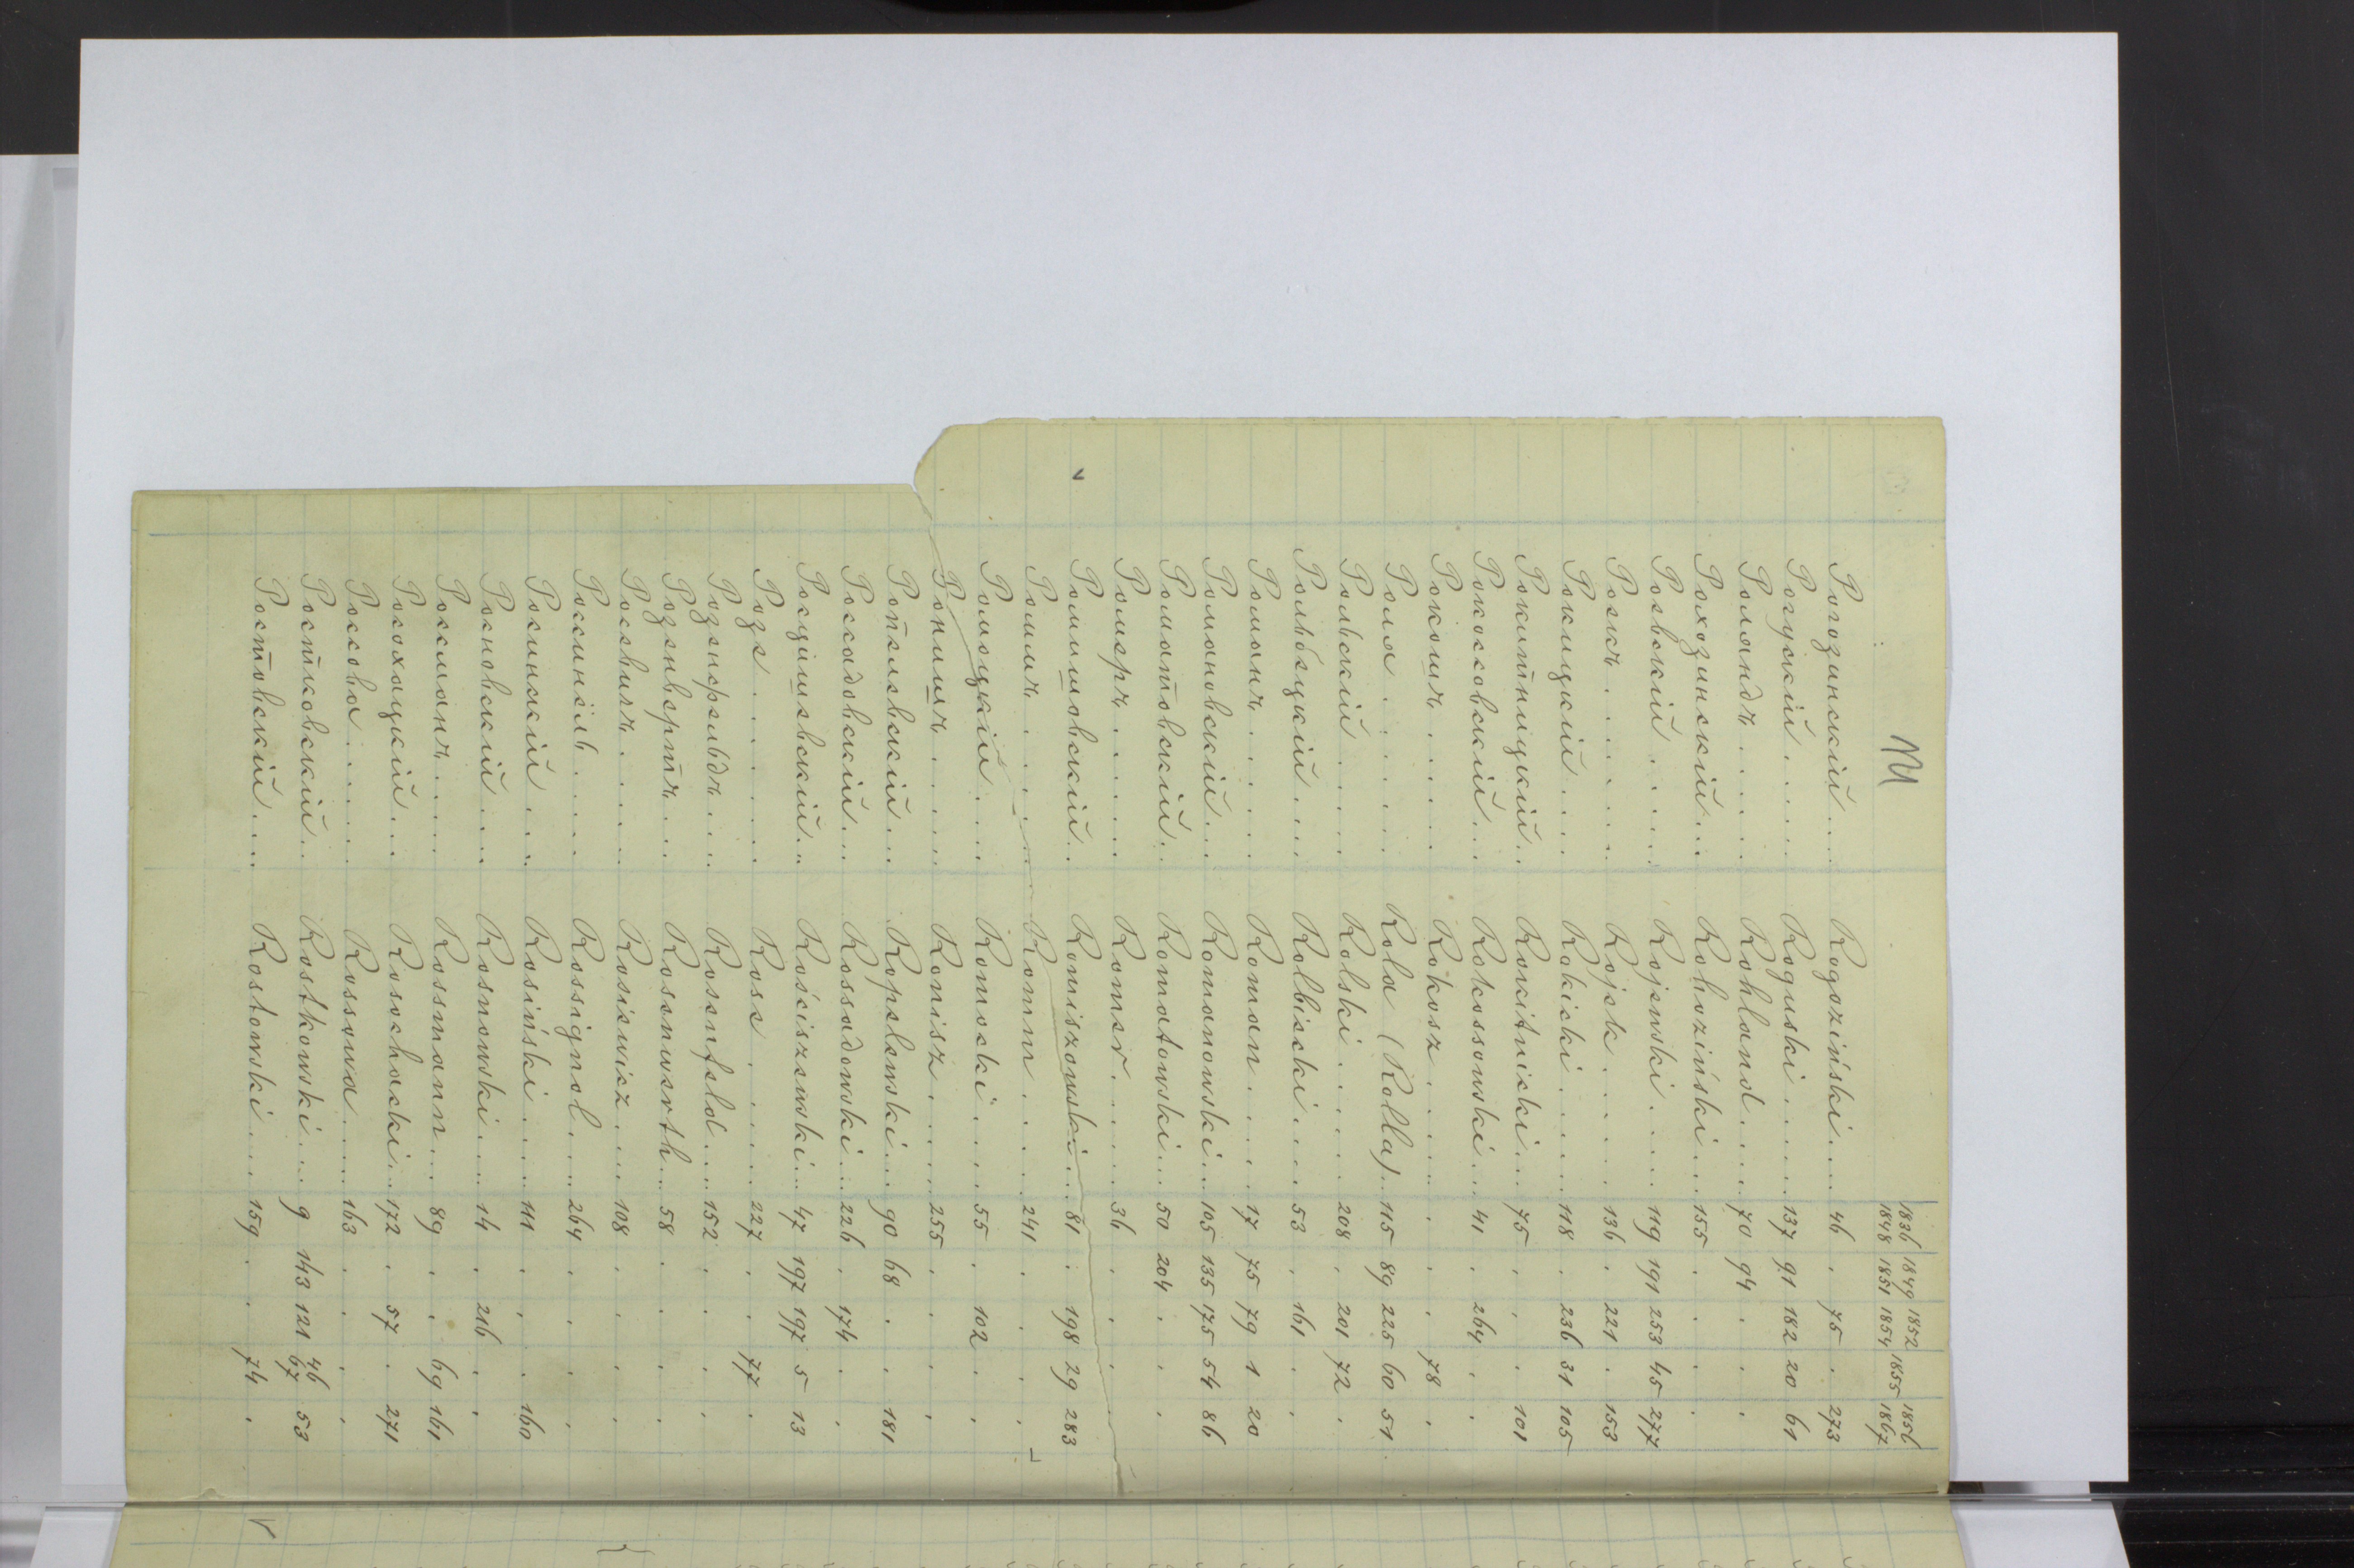 1836 1849 1852 1855 1856
1848 1851 1854 1867
Рогозинскій ... Rogoziński .... 46 . 75 . 273
Рогускій ..... Roguski ...... 137 91 182 20 61
Роландъ ..... Rohland .... 70 94 . . .
Рохозинскій ... Rohoziński ... 155 . . . .
Роевскій ..... Rojewski ..... 119 191 253 45 277
Роекъ ...... Rojek ...... 136 . 221 . 153
Рокицкій .... Rokicki ...... 118 . 236 31 105
Рокитницкій .. Rokitnicki ... 75 . . . 101
Рокоссовскій ... Rokossowski ... 41 . 264 . .
Рокошъ ..... Rokosz ...... . . . 78 .
Рола ..... Rola (Rolla) .. 115 89 225 60 51
Рольскій .... Rolski ...... 208 . 201 72 .
Рольбецкій ... Rolbiecki .... 53 . 161 . .
Романъ ..... Roman ..... 17 75 79 1 20
Романовскій ... Romanowski ... 105 135 175 54 86
Роматовскій .. Romatowski ... 50 204 . . .
Ромеръ ..... Romer ...... 36 . . . .
Ромишовскій .. Romiszowski ... 81 . 198 29 283
Роммъ ..... Romm ..... 241 . . . .
Ромоцкій .... Romocki .... 55 . 102 . .
Ронишъ ..... Ronisz ..... 255 . . . .
Ропелевскій ... Ropelewski ... 90 68 . . 181
Россадовскій ... Rossadowski ... 226 . 174 . .
Росцишевскій .. Rościszewski ... 47 197 197 5 13
Розе ...... Rose ...... 227 . . 77 .
Розенфельдъ ... Rosenfeld ... 152 . . . .
Розенвертъ ... Rosenwerth .. 58 . . . .
Росевичъ .... Rosiewicz .... 108 . . . .
Россиніоль .... Rossignol .... 264 . . . .
Росинскій .... Rosiński .... 111 . . . 160
Росновскій .... Rosnowski .... 14 . 216 . .
Россманъ .... Rossmann ... 89 . . 69 161
Росохацкій ... Rosochacki ... 172 . 57 . 271
Россова ..... Rossowa .... 163 . . . .
Ростковскій .. Rostkowski ... 9 143 121 46 67 53
Ростовскій .... Rostowski ... 159 . . 74 .